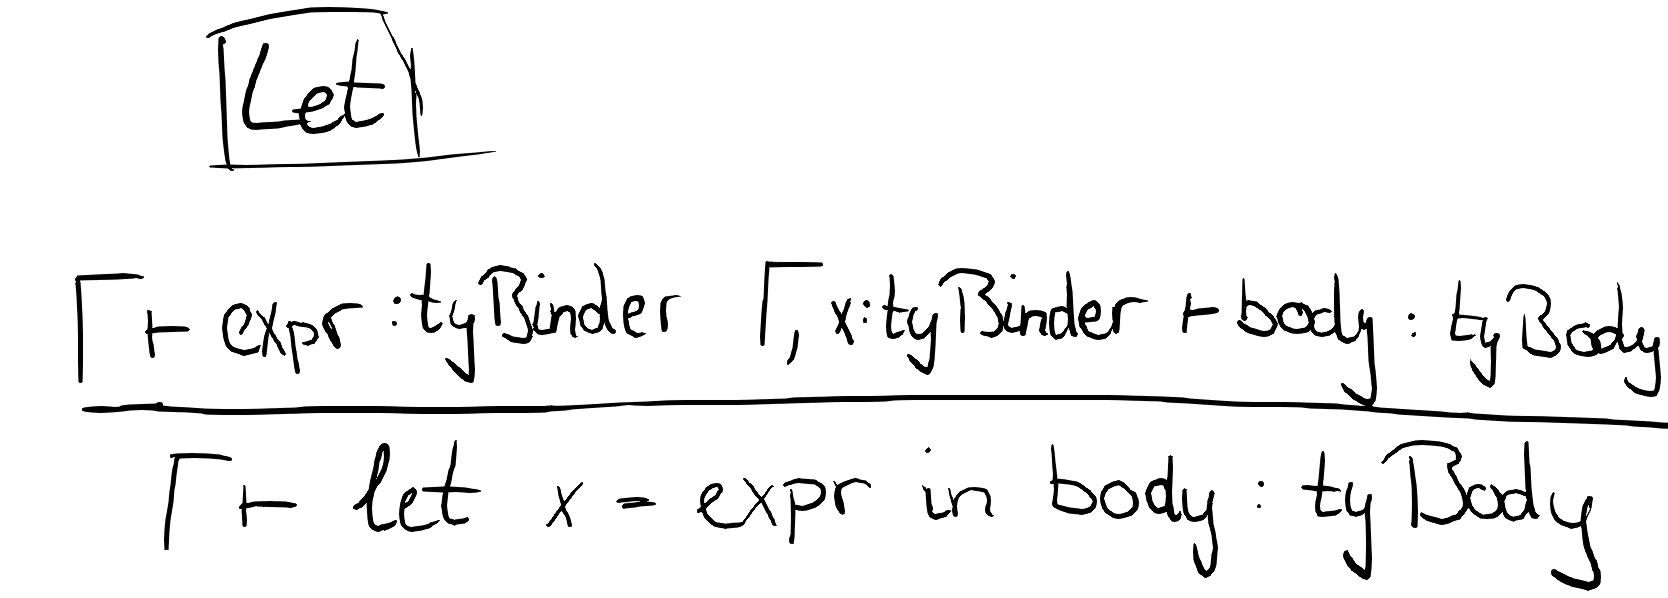 Let
Γ ⊢ expr : tyBinder Γ, x : tyBinder ⊢ body : tyBody
Γ ⊢ let x = expr in body : tyBody